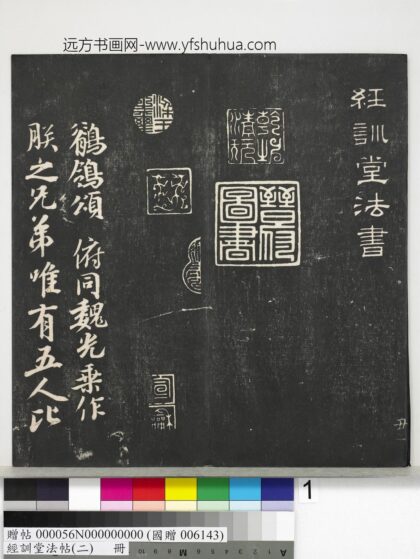 远方书画网-www.yfshuhua.com
經訓堂法書
乾坤清玩
晉府圖書
鶺鴒頌 俯同魏光乘作
朕之兄弟唯有五人比
丑
1
贈帖 000056N000000000 (國贈 006143)
經訓堂法帖(二) 冊